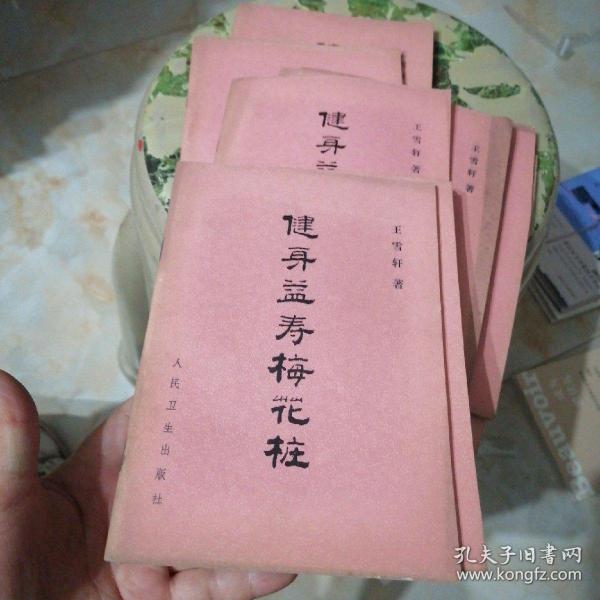 王雪轩著
健身益寿梅花桩
人民卫生出版社
王雪轩著
健身益
王雪轩著
Beauvoir
孔夫子旧書网
www.kongfz.com